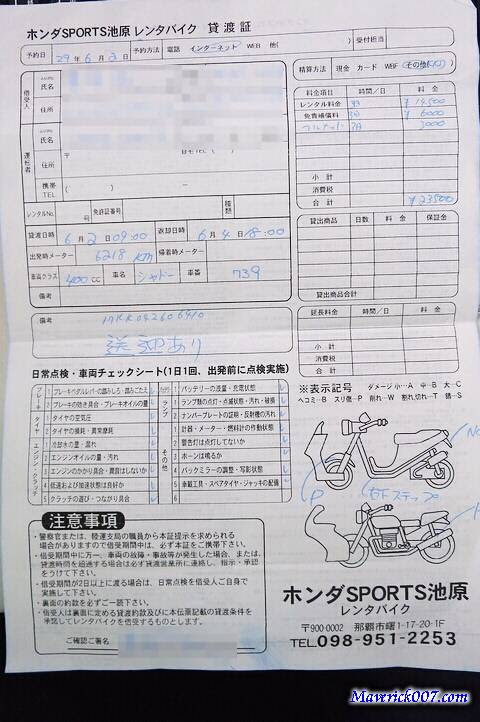 ホンダSPORTS池原 レンタバイク 貸渡証
予約日 29年6月2日 予約方法 電話 インターネット WEB 他( ) 受付担当
精算方法 現金 カード WBF その他
借受人 氏名
住所
運転者 氏名
住所 〒 自宅TEL( )
携帯TEL ( ) ー
料金項目 時間/日 料金
レンタル料金 3日 ¥14500
免責補償料 3日 ¥6000
3日 3000
小計
消費税
合計 ¥23500
レンタルNo. 号 免許証番号 種類
貸渡日時 6月2日09:00 返却日時 6月4日18:00
出発時メーター 6218 km 帰着時メーター
車両クラス 400cc 車名 シャドー 車番 739
備考
貸出商品 日数 料金 保証金
貸出商品合計
備考 MKK042606410
送迎あり
延長料金 時間/日 料金
小計
消費税
合計
日常点検・車両チェックシート(1日1回、出発前に点検実施)
ブレーキ
1 ブレーキペダルレバーの踏みしろ・踏みごたえ
2 ブレーキの効き具合・ブレーキオイルの量
タイヤ
1 タイヤの空気圧
2 タイヤの損耗・異常摩耗
エンジン・クラッチ
1 冷却水の量・漏れ
2 エンジンオイルの量・汚れ
3 エンジンのかかり具合・異音はしないか
4 低速および加速状態は良好か
5 クラッチの遊び・つながり具合
1 バッテリーの液量・充電状態
ランプ
1 ランプ類の点灯・点滅状態・汚れ・破損
2 ナンバープレートの証明・反射機の汚れ
その他
1 計器・メーター・燃料計の作動状態
2 警告灯は点灯してないか
3 ホーンは鳴るか
4 バックミラーの調整・写影状態
5 車載工具・スペアタイヤ・ジャッキの配備
※表示記号 ダメージ小…A 中…B 大…C
ヘコミ…B スリ傷…P 削れ…W 割れ,切れ…T 錆…S
P
右下ステップ
注意事項
・警察官または、陸運支局の職員から本証提示を求められる
場合がありますので借受期間中は、必ず本証をご携帯下さい。
・借受期間中に万一、車両の故障・事故等が発生した場合、または、
貸渡時間を超過する場合は必ず貸渡営業所に連絡し、指示・承認
をうけて下さい。
・借受期間が2日以上に渡る場合は、日常点検を借受人ご自身で
実施して下さい。
・裏面の約款を必ずご一読下さい。
・借受人は裏面に定める貸渡約款及びに本伝票記載の貸渡条件を
承諾してレンタバイクを借受するものとします。
ご確認ご署名
ホンダSPORTS池原
レンタバイク
〒900-0002 那覇市曙1-17-20-1F
TEL.098-951-2253
Maverick007.com